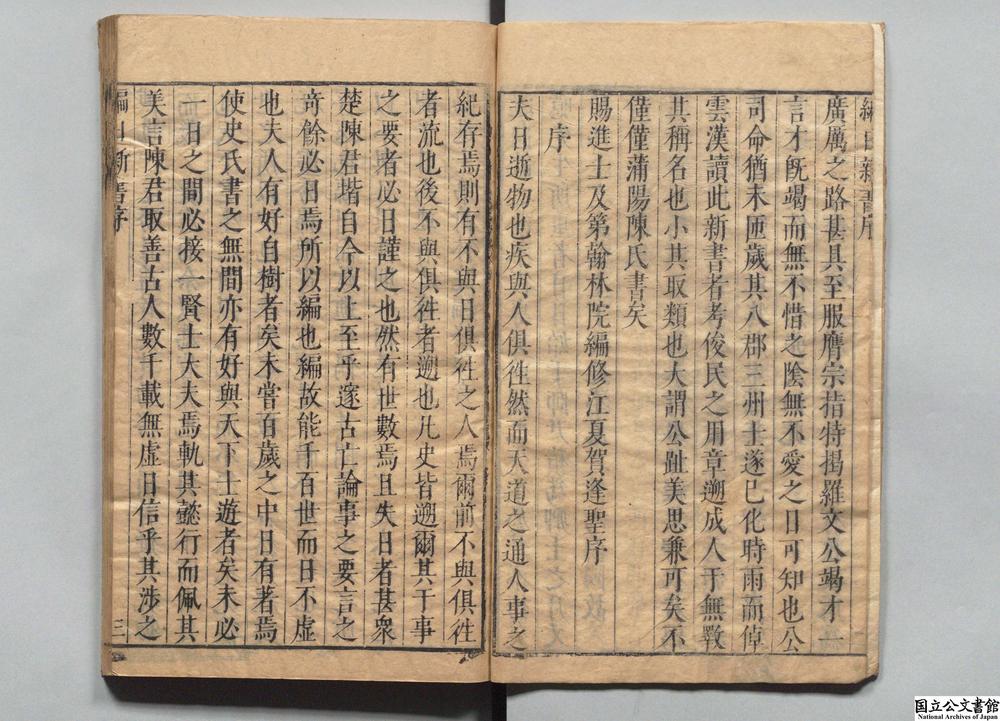 編日新書序
廣厲之路甚具至服膺宗指特揭羅文公竭才一
言才旣竭而無不惜之陰無不愛之日可知也公
司命猶未匝歲其八郡三州士遂已化時雨而倬
雲漢讀此新書者考俊民之用章遡成人于無斁
其稱名也小其取類也大謂公趾美思兼可矣不
僅僅蒲陽陳氏書矣
賜進士及第翰林院編修江夏賀逢聖序
序
夫日逝物也疾與人俱徃然而天道之通人事之
紀存焉則有不與日俱徃之人焉爾前不與俱徃
者流也後不與俱徃者遡也凡史皆遡爾其于事
之要者必日謹之也然有世數焉且失日者甚衆
楚陳君堦自今以上至乎邃古亡論事之要言之
奇餘必日焉所以編也編故能千百世而日不虛
也夫人有好自樹者矣未嘗百歲之中日有著焉
使史氏書之無間亦有好與天下士遊者矣未必
一日之間必接一賢士大夫焉軌其懿行而佩其
美言陳君取善古人數千載無虛日信乎其涉之
編日新書序
三
国立公文書館
National Archives of Japan